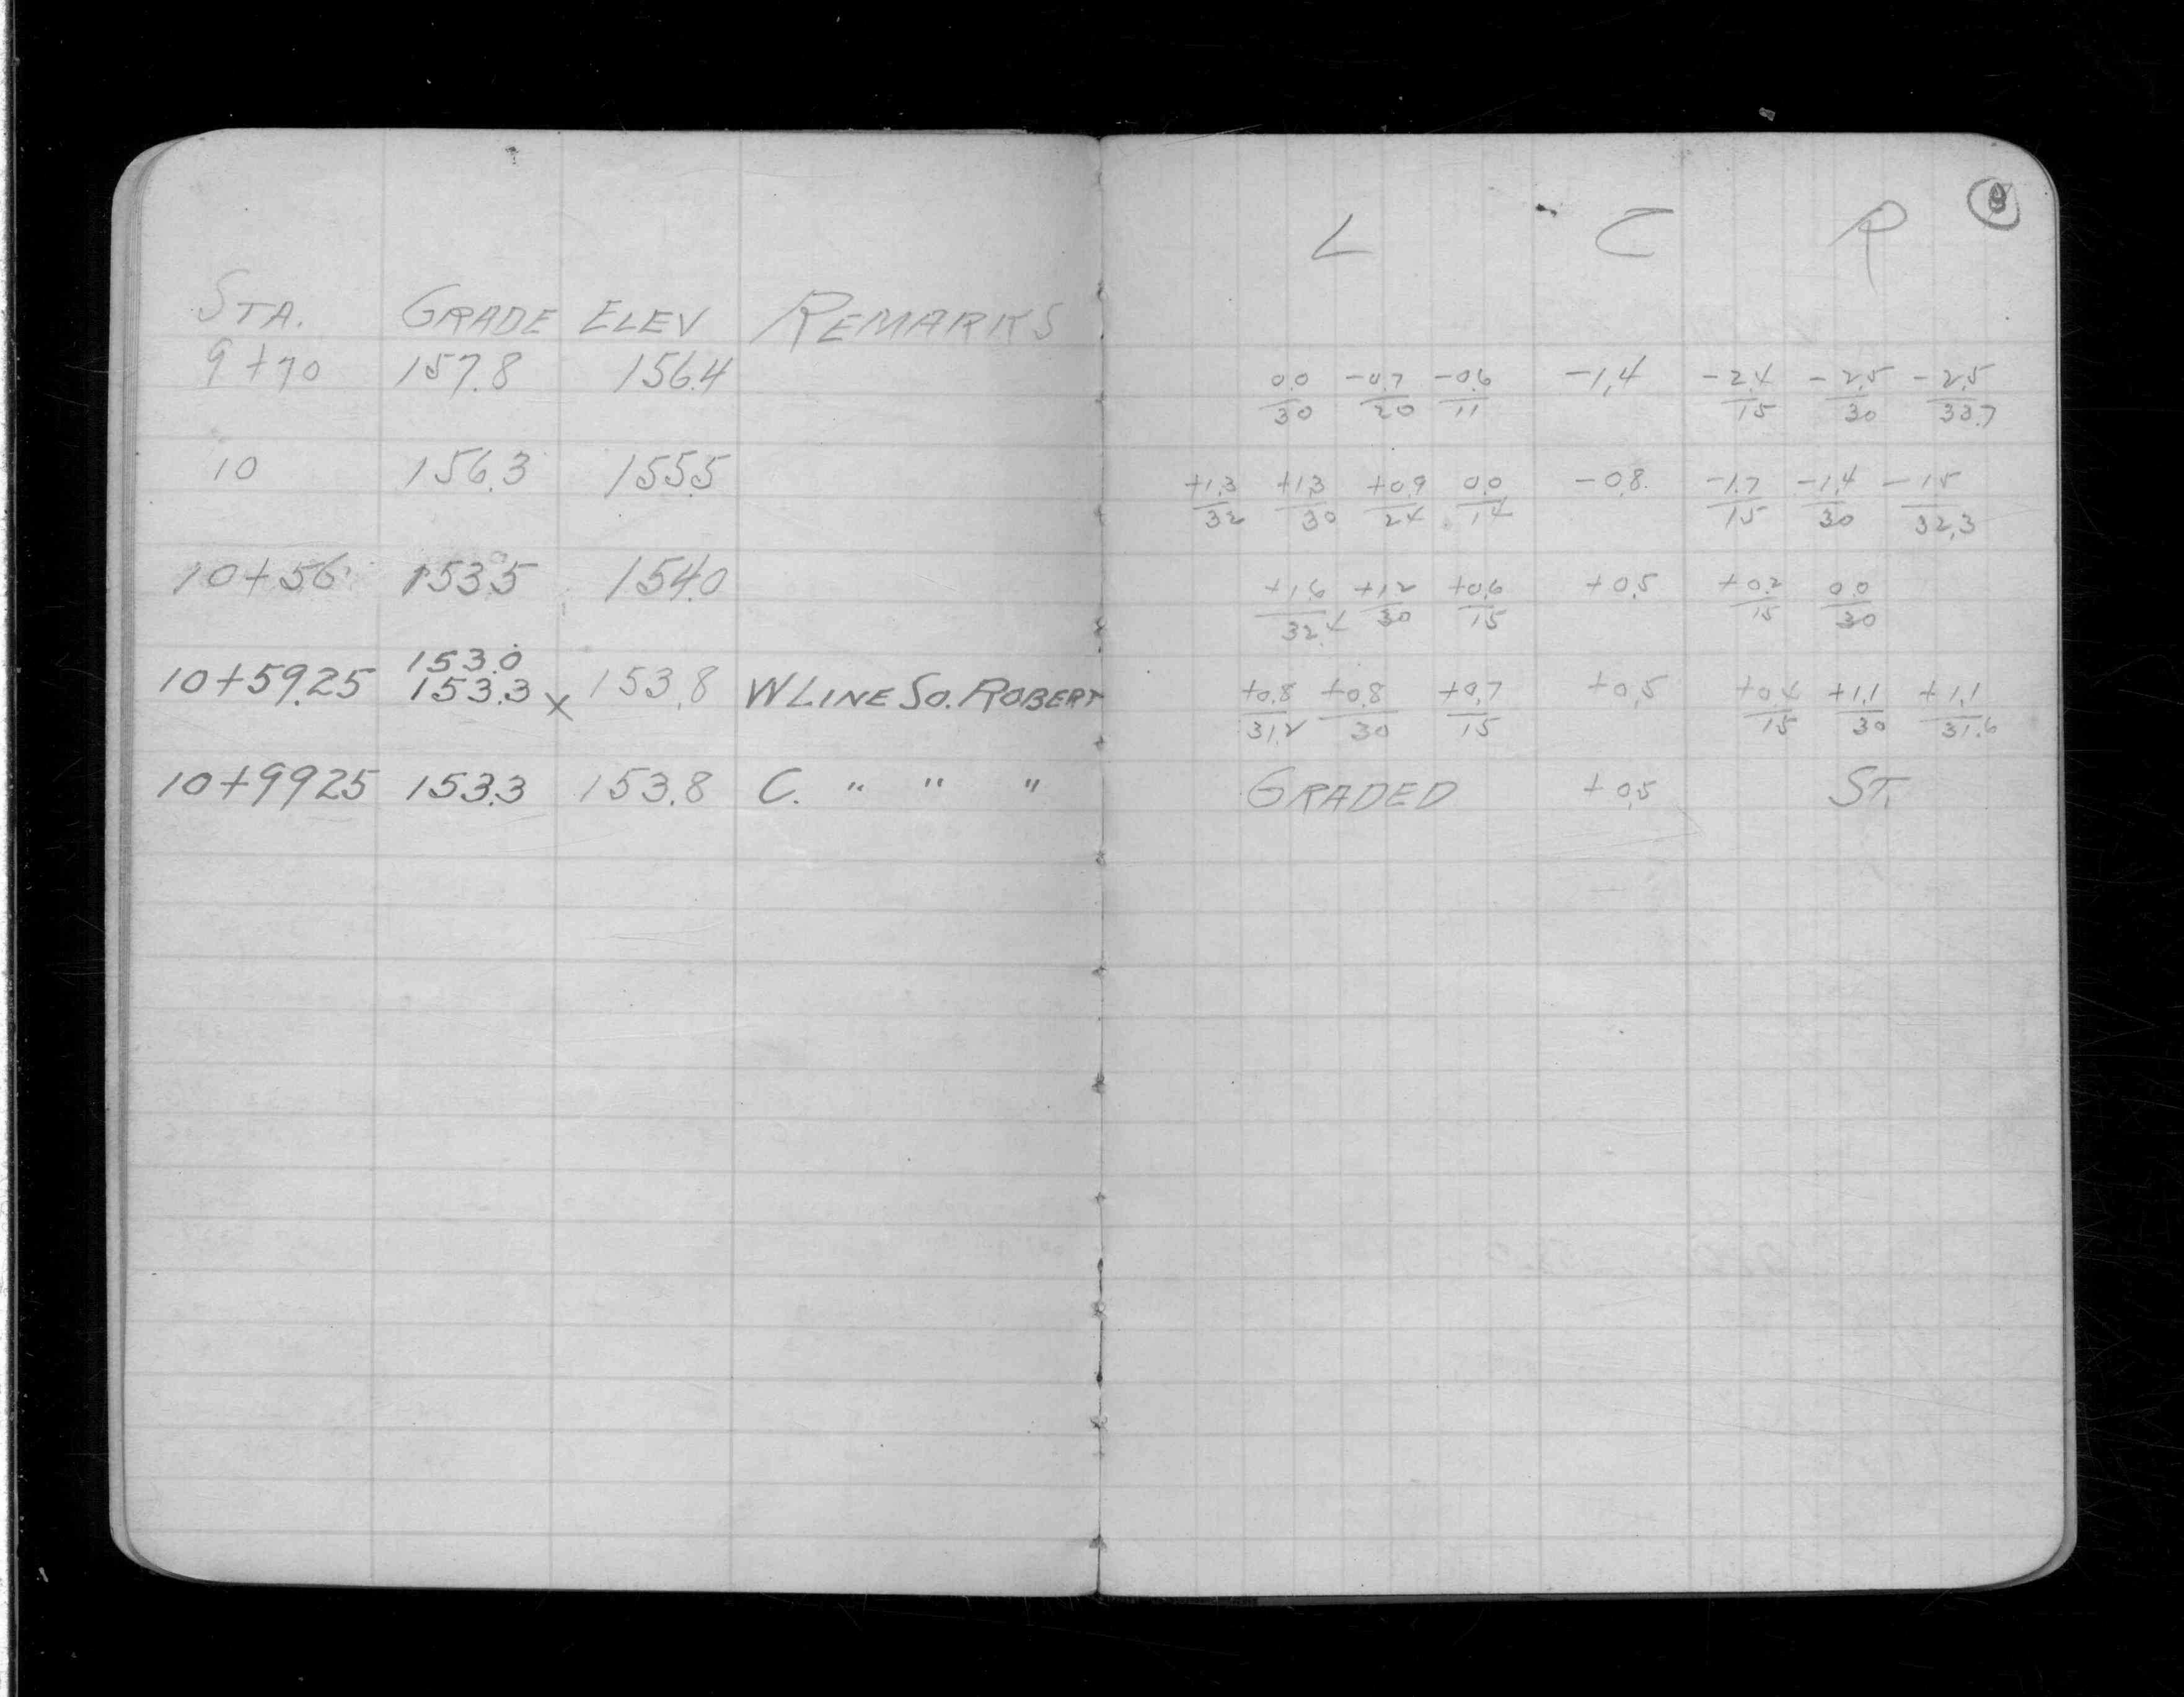 STA. GRADE ELEV REMARKS
9+70 157.8 156.4
10 156.3 155.5
10+56 153.5 154.0
153.0
10+59.25 153.3 x 153.8 W LINE SO. ROBERT
10+9925 153.3 153.8 C. " " "
L C R
0.0 -0.7 -0.6 -1.4 -2.4 -2.5 -2.5
30 20 11 15 30 33.7
+1.3 +1.3 +0.9 0.0 -0.8 -1.7 -1.4 -1.5
32 30 24 14 15 30 32.3
+1.6 +1.2 +0.6 +0.5 +0.2 0.0
32.4 30 15 15 30
+0.8 +0.8 +0.7 +0.5 +0.4 +1.1 +1.1
31.2 30 15 15 30 31.6
GRADED +0.5 ST.